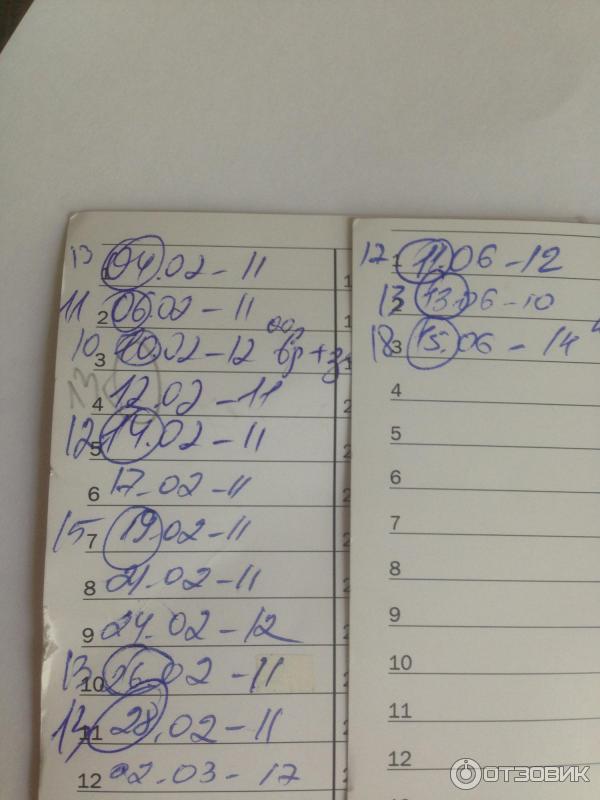 13 1 04.02-11
11 2 06.02-11
10 3 10.02-12
13 4 12.02-11
12 5 14.02-11
6 17.02-11
15 7 19.02-11
8 21.02-11
9 24.02-12
13 10 26.02-11
11 28.02-11
12 02.03-12
1 11.06-12
13 2 13.06-10
18 3 15.06-14
4
5
6
7
8
9
10
11
12
ОТЗОВИК